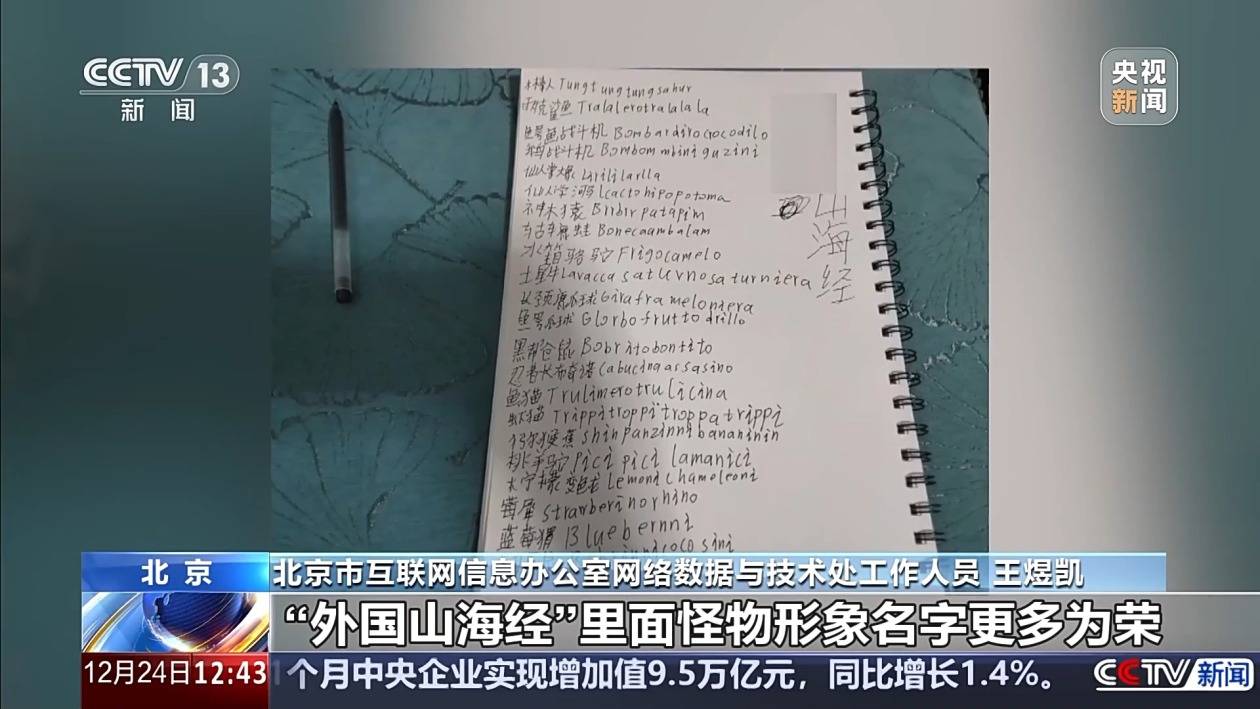 CCTV 13
新闻
央视
新闻
木棒人 Tungtungtungsahur
耐克鲨鱼 Tralalerotralalala
鳄鱼战斗机 Bombardirocrocodilo
鹅战斗机 Bombombmbiniguzini
仙人掌象 Lirililarila
仙人掌河马 Icactohipopotoma
神木猿 Brrbrrpatapim
青蛙 Bonecaambalam
冰箱骆驼 Frigocamelo
土星牛 Lavaccasaturnosaturniera
长颈鹿瓜球 Giraframeloniera
鳄瓜球 Glorbofruttodrillo
黑帮仓鼠 Bobritobontito
忍者卡布奇诺 Cabucinaassasino
鱼猫 Trulimerotrulicina
虾猫 Trippitroppitroppatrippi
蕉 shinpanzinnibananinin
驼 pici pici lamanici
大柠檬变色龙 Lemonichameleoni
莓犀 strawberinorhino
蓝莓 Bluebernni
cocosini
山
海
经
北京
北京市互联网信息办公室网络数据与技术处工作人员 王煜凯
“外国山海经”里面怪物形象名字更多为荣
12月24日12:43
1个月中央企业实现增加值9.5万亿元，同比增长1.4%。
CCTV新闻